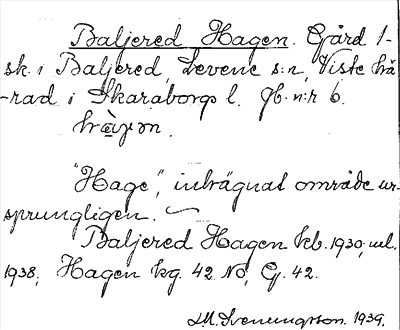 Baljered Hagen. Gård 1-
sk. i Baljered, Levene s:n, Viste hä-
-rad i Skaraborgs l. Jb. n:r 6.
"Hage", inhägnat område ur-
sprungligen.
Baljered Hagen kb. 1930, ml.
1938; Hagen kg. 42 NO, G. 42.
L.M. Svenungsson. 1939.